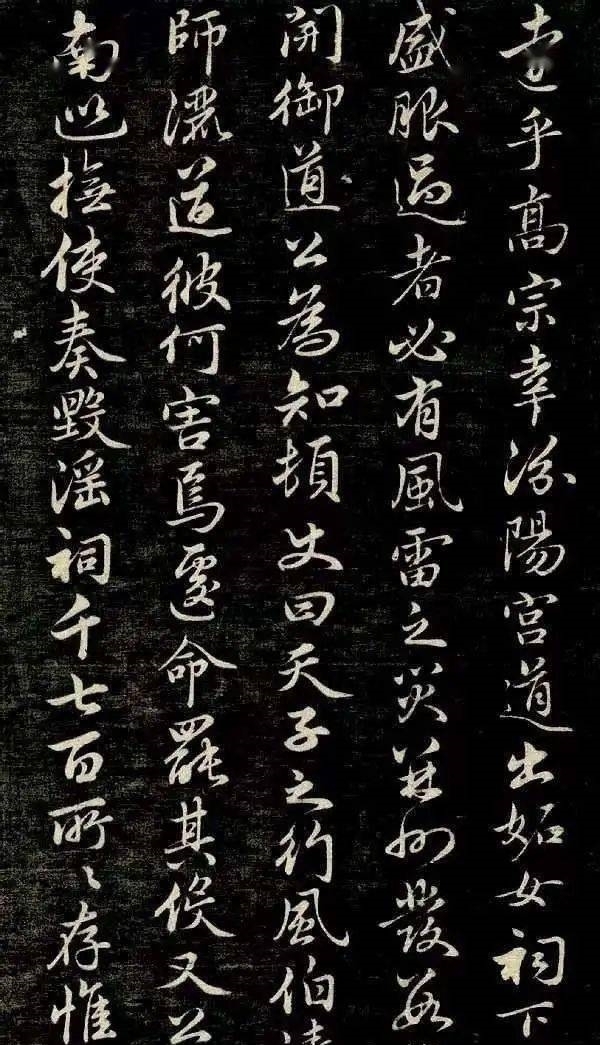 乎高宗幸汾陽宮道出妬女祠下
盛服過者必有風雷之災并州發數
開御道公為知頓史曰天子之行風伯清
師灑道彼何害焉遽命罷其役又公
南巡撫使奏毀淫祠千七百所々存惟